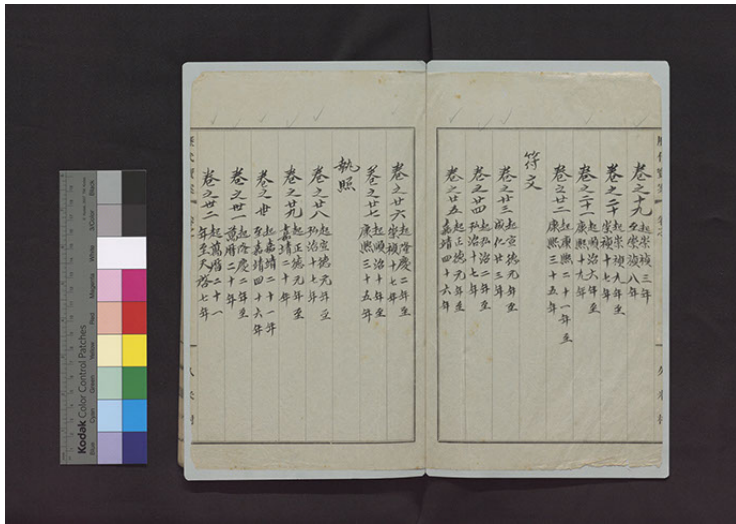 卷之十九 起崇禎三年
至崇禎八年
卷之二十 起崇禎九年至
崇禎十七年
卷之二十一 起順治六年至
康熙十九年
卷之廿二 起康熙二十一年至
康熙三十五年
符文
卷之廿三 起宣德元年至
成化廿三年
卷之廿四 起弘治二年至
弘治十七年
卷之廿五 起正德元年至
嘉靖四十六年
卷之廿六 起隆慶二年至
崇禎十七年
卷之廿七 起順治十年至
康熙三十五年
執照
卷之廿八 起宣德元年至
弘治十七年
卷之廿九 起正德元年至
嘉靖二十年
卷之卅 起嘉靖二十一年
至嘉靖四十六年
卷之卅一 起隆慶二年至
萬曆二十年
卷之卅二 起萬曆二十一
年至天啓七年
Kodak Color Control Patches
Blue
Cyan
Green
Yellow
Red
Magenta
White
3/Color
Black